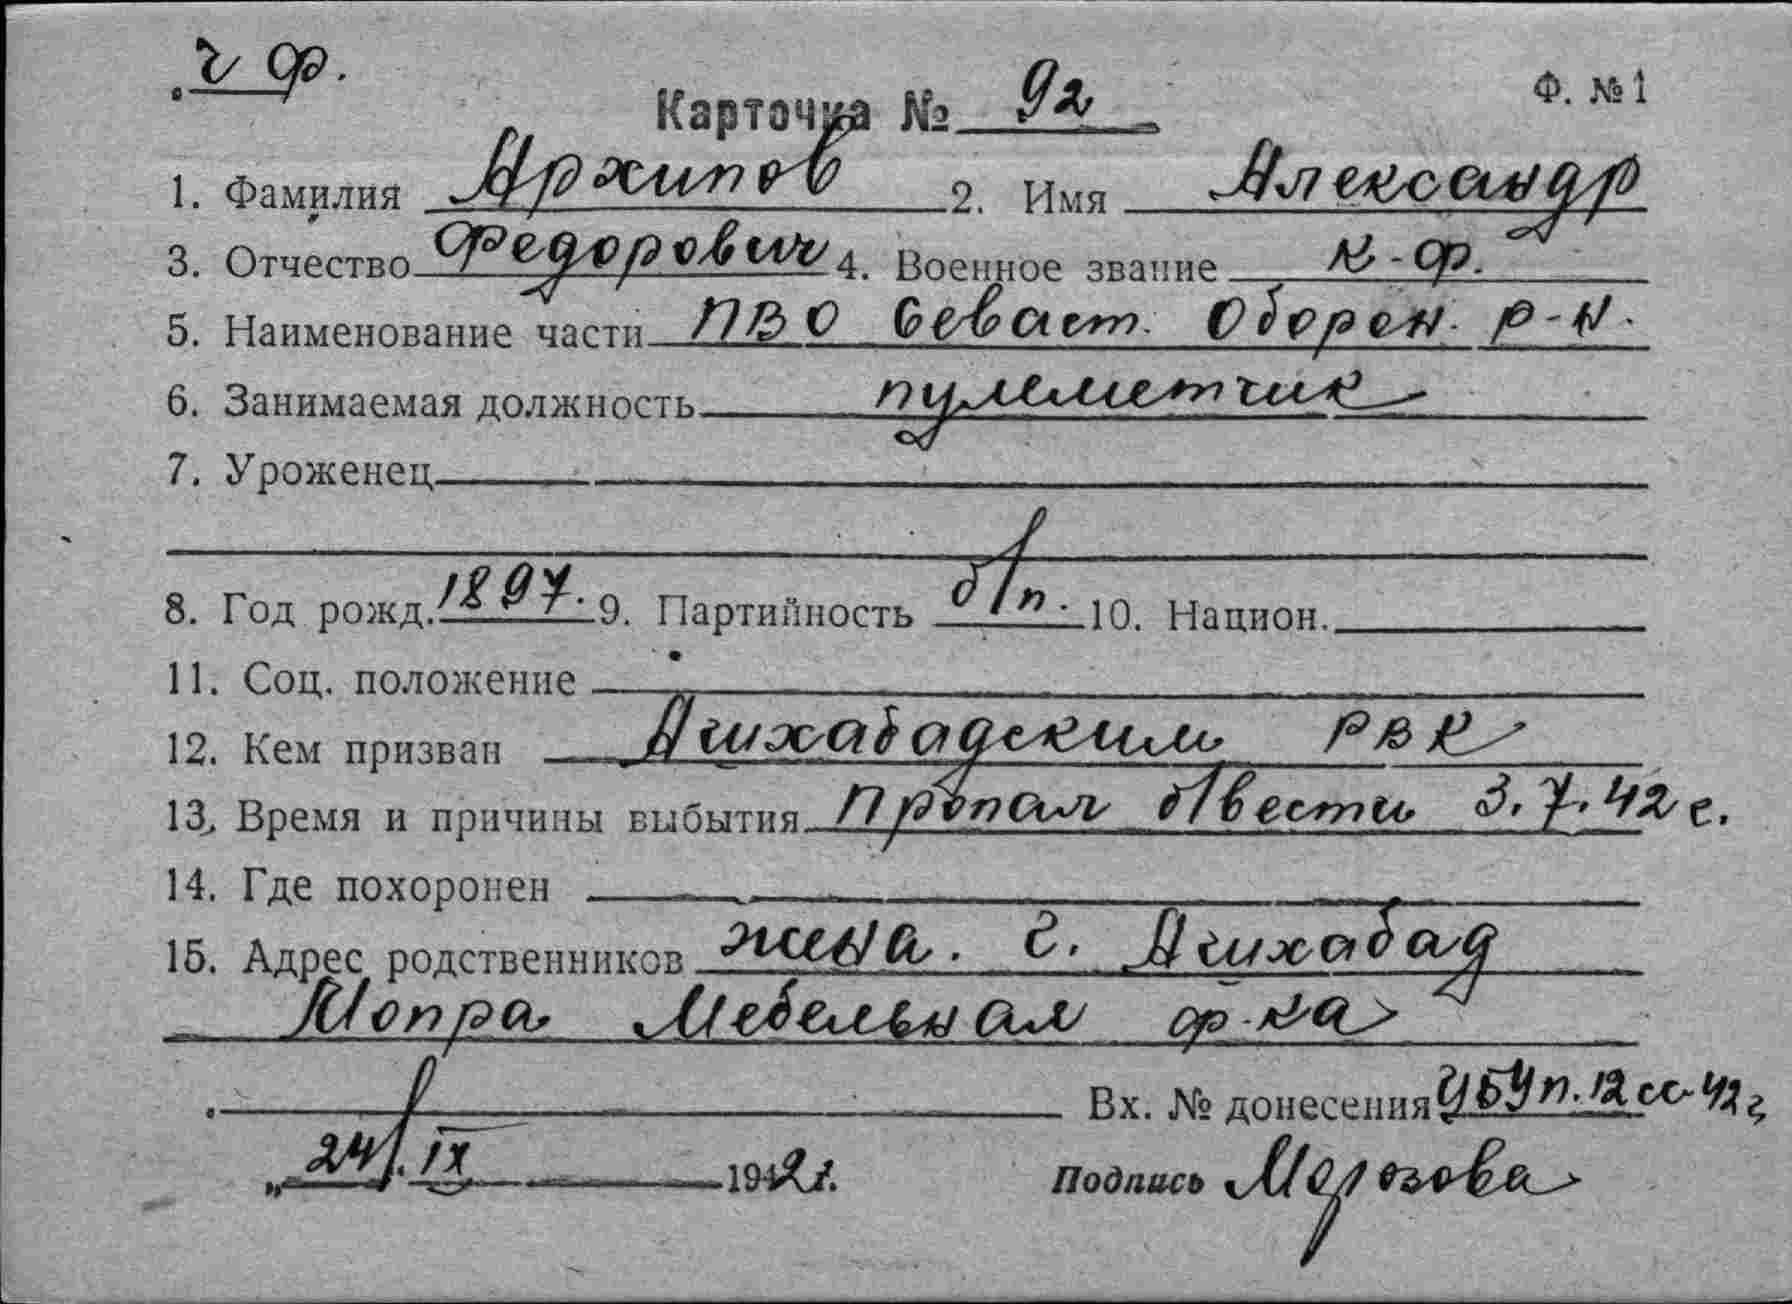 ч ф.
Карточка № 92
Ф. № 1
1. Фамилия Архипов 2. Имя Александр
3. Отчество Федорович 4. Военное звание к-ф.
5. Наименование части ПВО Севаст. Оборон. р-н.
6. Занимаемая должность пулеметчик
7. Уроженец
8. Год рожд. 1897. 9. Партийность б/п. 10. Национ.
11. Соц. положение
12. Кем призван Ашхабадским РВК
13. Время и причины выбытия Пропал б/вести 3.7.42 г.
14. Где похоронен
15. Адрес родственников жена. г. Ашхабад
Мопра Мебельная ф-ка
Вх. № донесения УБУ п. 12 сс-42 г.
„24/. IX 1942 г.
Подпись Морозова